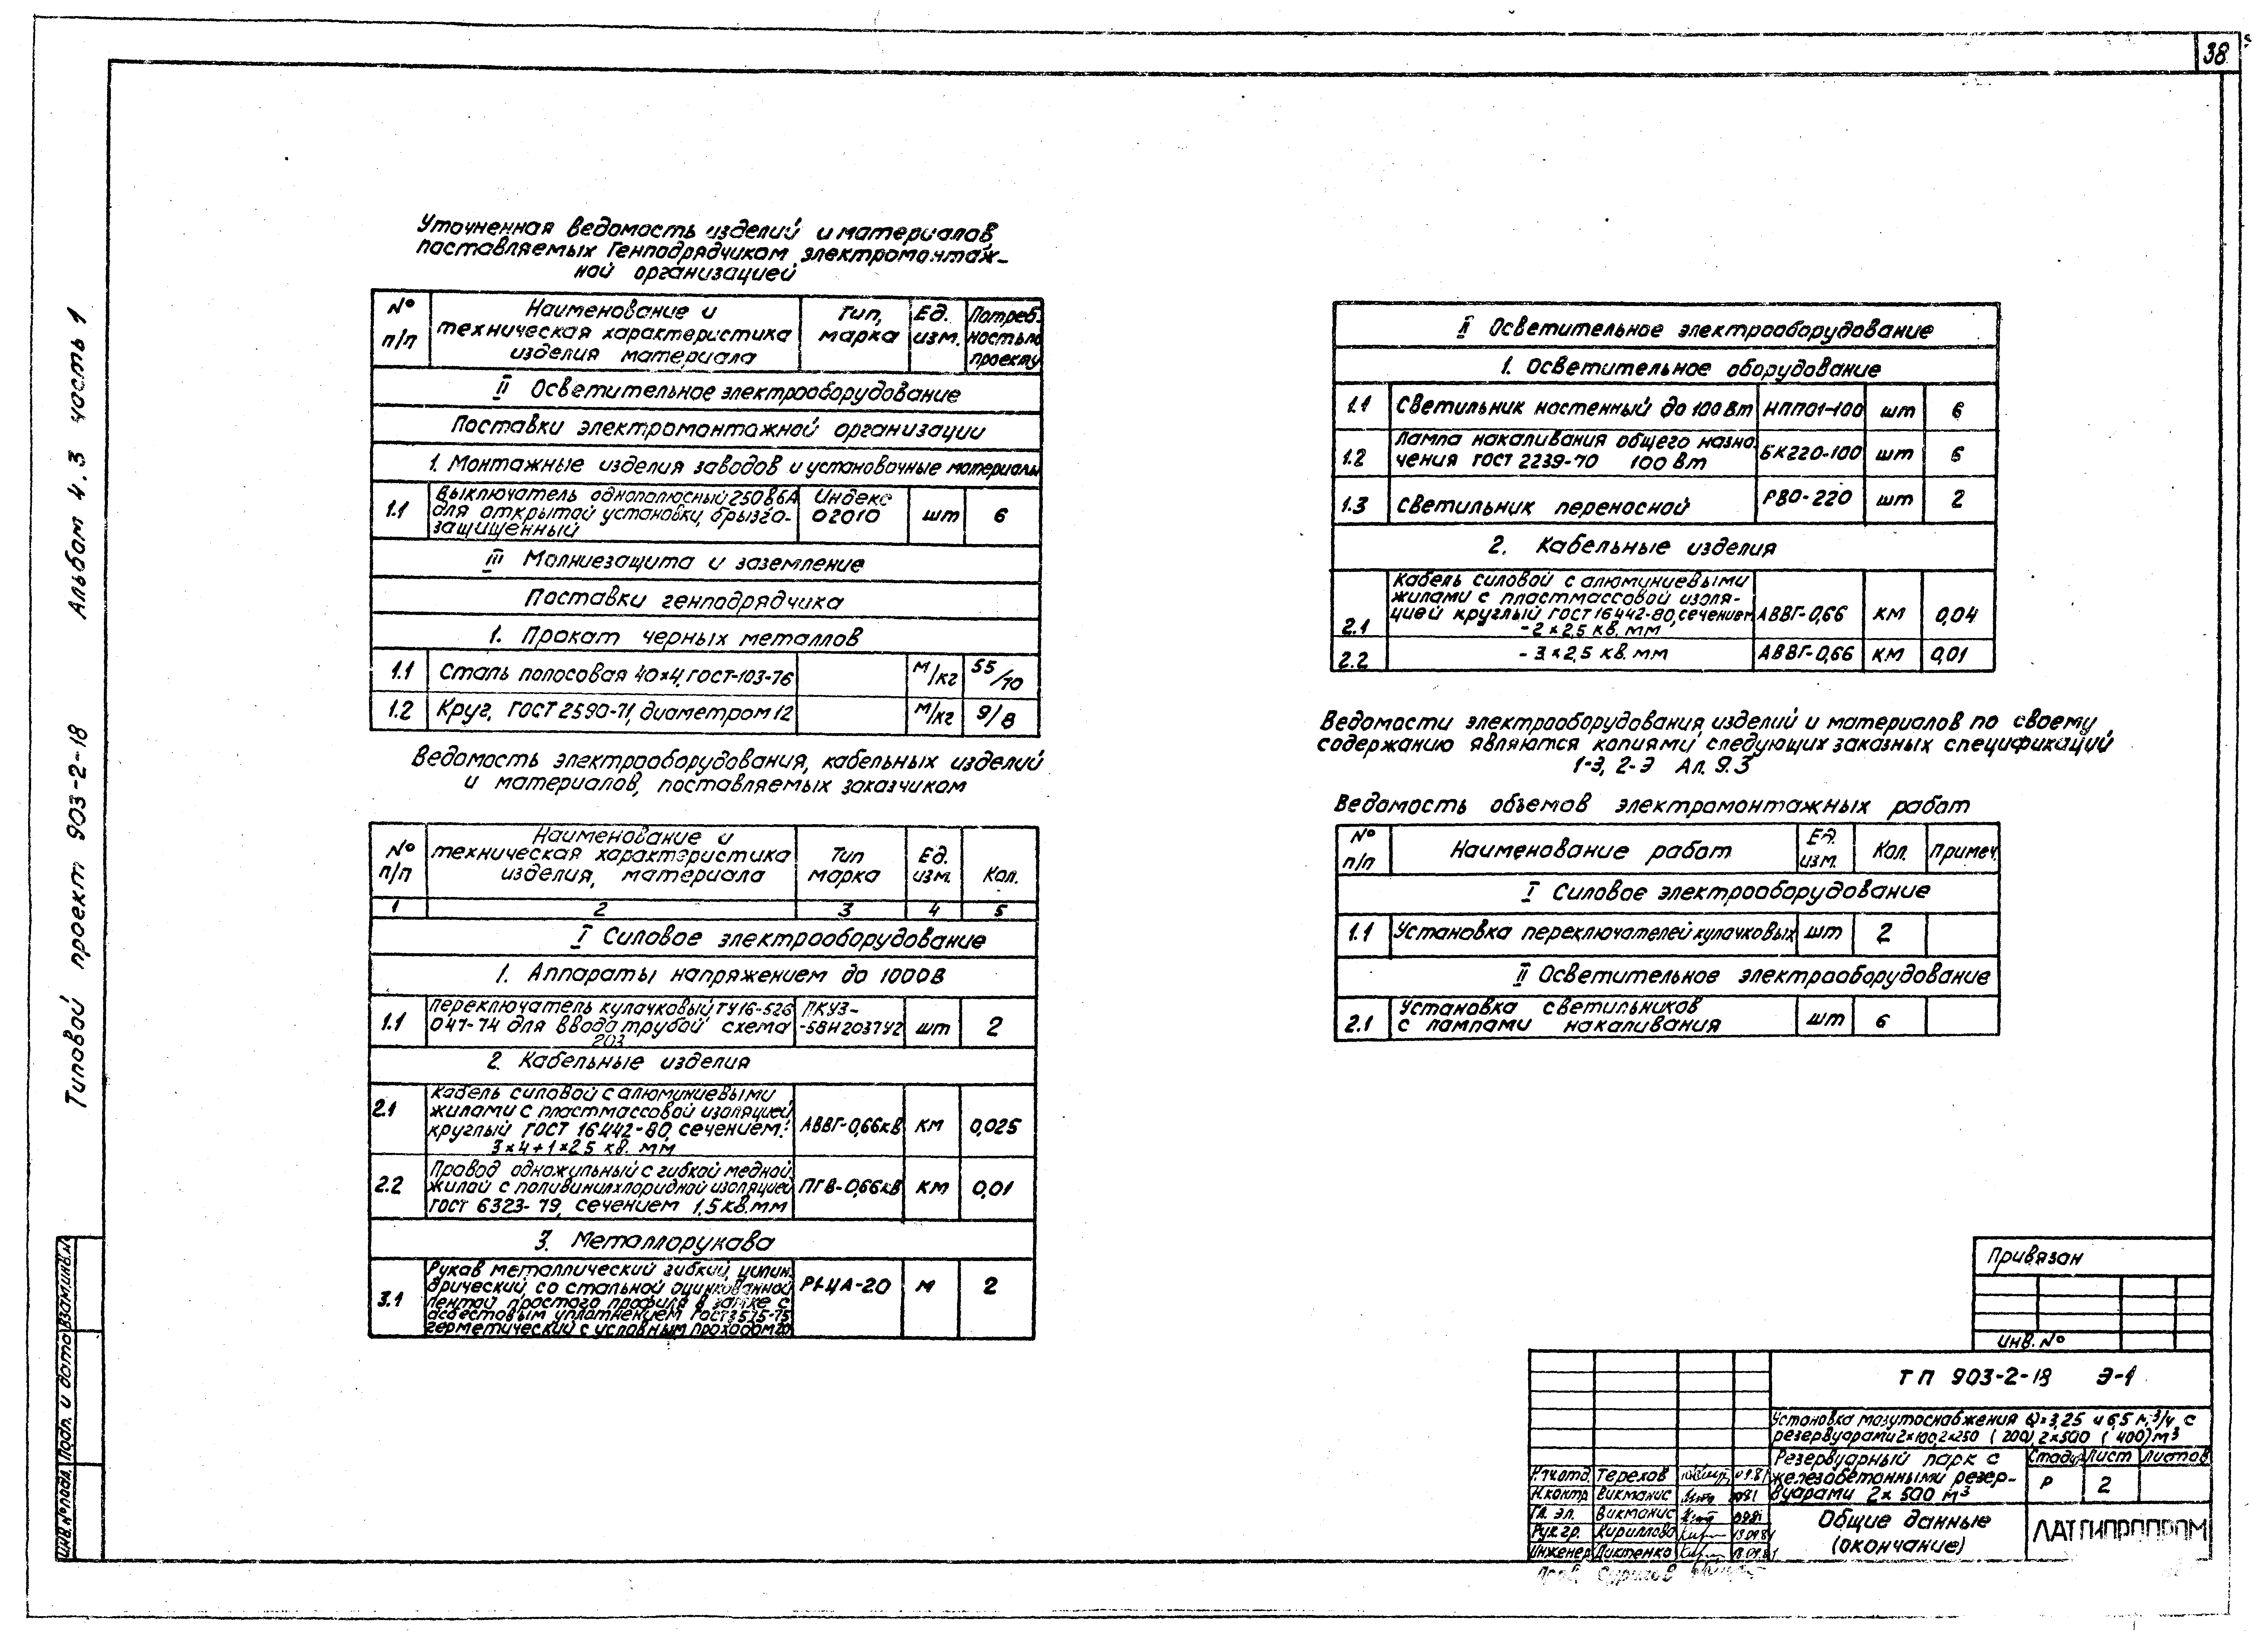 38
Типовой проект 903-2-18 Альбом 4.3 часть 1
Уточненная ведомость изделий и материалов,
поставляемых Генподрядчиком, электромонтаж-
ной организацией
№ п/п | Наименование и техническая характеристика изделия материала | Тип, марка | Ед. изм. | Потреб- ность по проекту
II Осветительное электрооборудование
Поставки электромонтажной организации
1. Монтажные изделия заводов и установочные материалы
1.1 Выключатель однополюсный 250В 6А Индекс
для открытой установки, брызго- 02010 шт 6
защищенный
III Молниезащита и заземление
Поставки генподрядчика
1. Прокат черных металлов
1.1 Сталь полосовая 40×4, ГОСТ-103-76 м/кг 55/70
1.2 Круг, ГОСТ 2590-71, диаметром 12 м/кг 9/8
Ведомость электрооборудования, кабельных изделий
и материалов, поставляемых заказчиком
№ п/п | Наименование и техническая характеристика изделия, материала | Тип марка | Ед. изм. | Кол.
1 2 3 4 5
I Силовое электрооборудование
1. Аппараты напряжением до 1000В
1.1 Переключатель кулачковый ТУ16-526 ПКУ3-
047-74 для ввода трубой схема -58Н2037У2 шт 2
203
2. Кабельные изделия
2.1 Кабель силовой с алюминиевыми
жилами с пластмассовой изоляцией
круглый ГОСТ 16442-80, сечением: АВВГ-0,66кВ км 0,025
3×4+1×2,5 кв. мм
Провод одножильный с гибкой медной
2.2 жилой с поливинилхлоридной изоляцией ПГВ-0,66кВ км 0,01
ГОСТ 6323-79, сечением 1,5 кв.мм
3. Металлорукава
Рукав металлический гибкий, цилин-
дрический, со стальной оцинкованной Р1-ЦА-20 м 2
3.1 лентой простого профиля в замке с
асбестовым уплотнением ГОСТ3575-75
герметический с условным проходом 20
II Осветительное электрооборудование
1. Осветительное оборудование
1.1 Светильник настенный до 100 Вт НПП01-100 шт 6
Лампа накаливания общего назна-
1.2 чения ГОСТ 2239-70 100 Вт БК220-100 шт 6
1.3 Светильник переносной РВО-220 шт 2
2. Кабельные изделия
Кабель силовой с алюминиевыми
жилами с пластмассовой изоля-
цией круглый ГОСТ 16442-80, сечением АВВГ-0,66 км 0,04
2.1 - 2×2,5 кв. мм
2.2 - 3×2,5 кв. мм АВВГ-0,66 км 0,01
Ведомости электрооборудования, изделий и материалов по своему
содержанию являются копиями следующих заказных спецификаций
1-Э, 2-Э Ал. 9.3
Ведомость объемов электромонтажных работ
№ п/п | Наименование работ | Ед. изм. | Кол. | Примеч.
I Силовое электрооборудование
1.1 Установка переключателей кулачковых шт 2
II Осветительное электрооборудование
2.1 Установка светильников
с лампами накаливания шт 6
Привязан
Инв. №
ТП 903-2-18 Э-1
Установка мазутоснабжения Q=3,25 и 6,5 м³/ч с
резервуарами 2×100, 2×250 (200), 2×500 (400) м³
Резервуарный парк с
железобетонными резер-
вуарами 2×500 м³
Стадия Лист Листов
Р 2
Общие данные
(окончание)
ЛАТГИПРОПРОМ
Нач.отд. Терехов
Н.контр. Викманис
Гл. эл. Викманис
Рук. гр. Кириллова
Инженер Диктенко
Инв. № подл. Подп. и дата Взам.инв.№